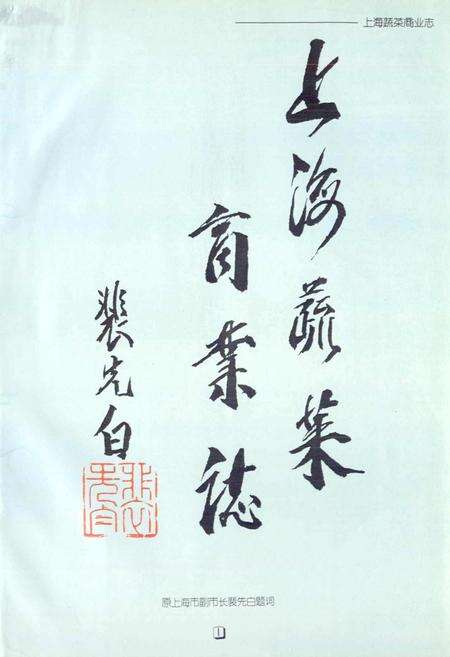 上海蔬菜商业志
上海蔬菜
商業誌
裴先白
原上海市副市长裴先白题词
1